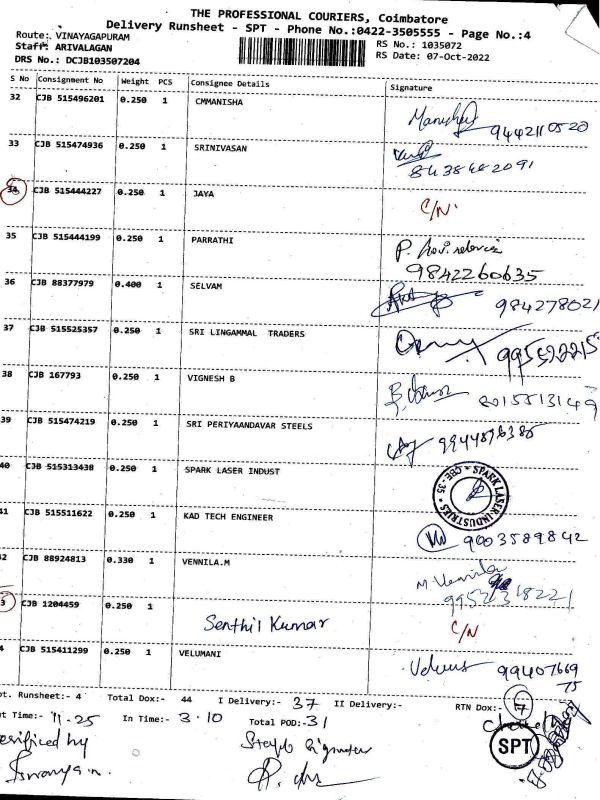 THE PROFESSIONAL COURIERS, Coimbatore
Delivery Runsheet - SPT - Phone No.:0422-3505555 - Page No.:4
Route: VINAYAGAPURAM
RS No.: 1035072
Staff: ARIVALAGAN
RS Date: 07-Oct-2022
DRS No.: DCJB103507204
S No Consignment No Weight PCS Consignee Details Signature
32 CJB 515496201 0.250 1 CMMANISHA
9442110520
33 CJB 515474936 0.250 1 SRINIVASAN
34 CJB 515444227 0.250 1 JAYA C/N
35 CJB 515444199 0.250 1 PARRATHI
9842260635
36 CJB 88377979 0.400 1 SELVAM
984278021
37 CJB 515525357 0.250 1 SRI LINGAMMAL TRADERS
38 CJB 167793 0.250 1 VIGNESH B
8015513149
39 CJB 515474219 0.250 1 SRI PERIYAANDAVAR STEELS
40 CJB 515313438 0.250 1 SPARK LASER INDUST
SPARK LASER INDUSTRIES * CBE - 35 *
41 CJB 515511622 0.250 1 KAD TECH ENGINEER
9003589842
42 CJB 88924813 0.330 1 VENNILA.M
M. Vennila
9952318221
3 CJB 1204459 0.250 1 Senthil Kumar C/N
4 CJB 515411299 0.250 1 VELUMANI
99407669
75
ot. Runsheet:- 4 Total Dox:- 44 I Delivery:- 37 II Delivery:- RTN Dox:- 7
t Time:- 11-25 In Time:- 3-10 Total POD:- 31
erified by
SPT